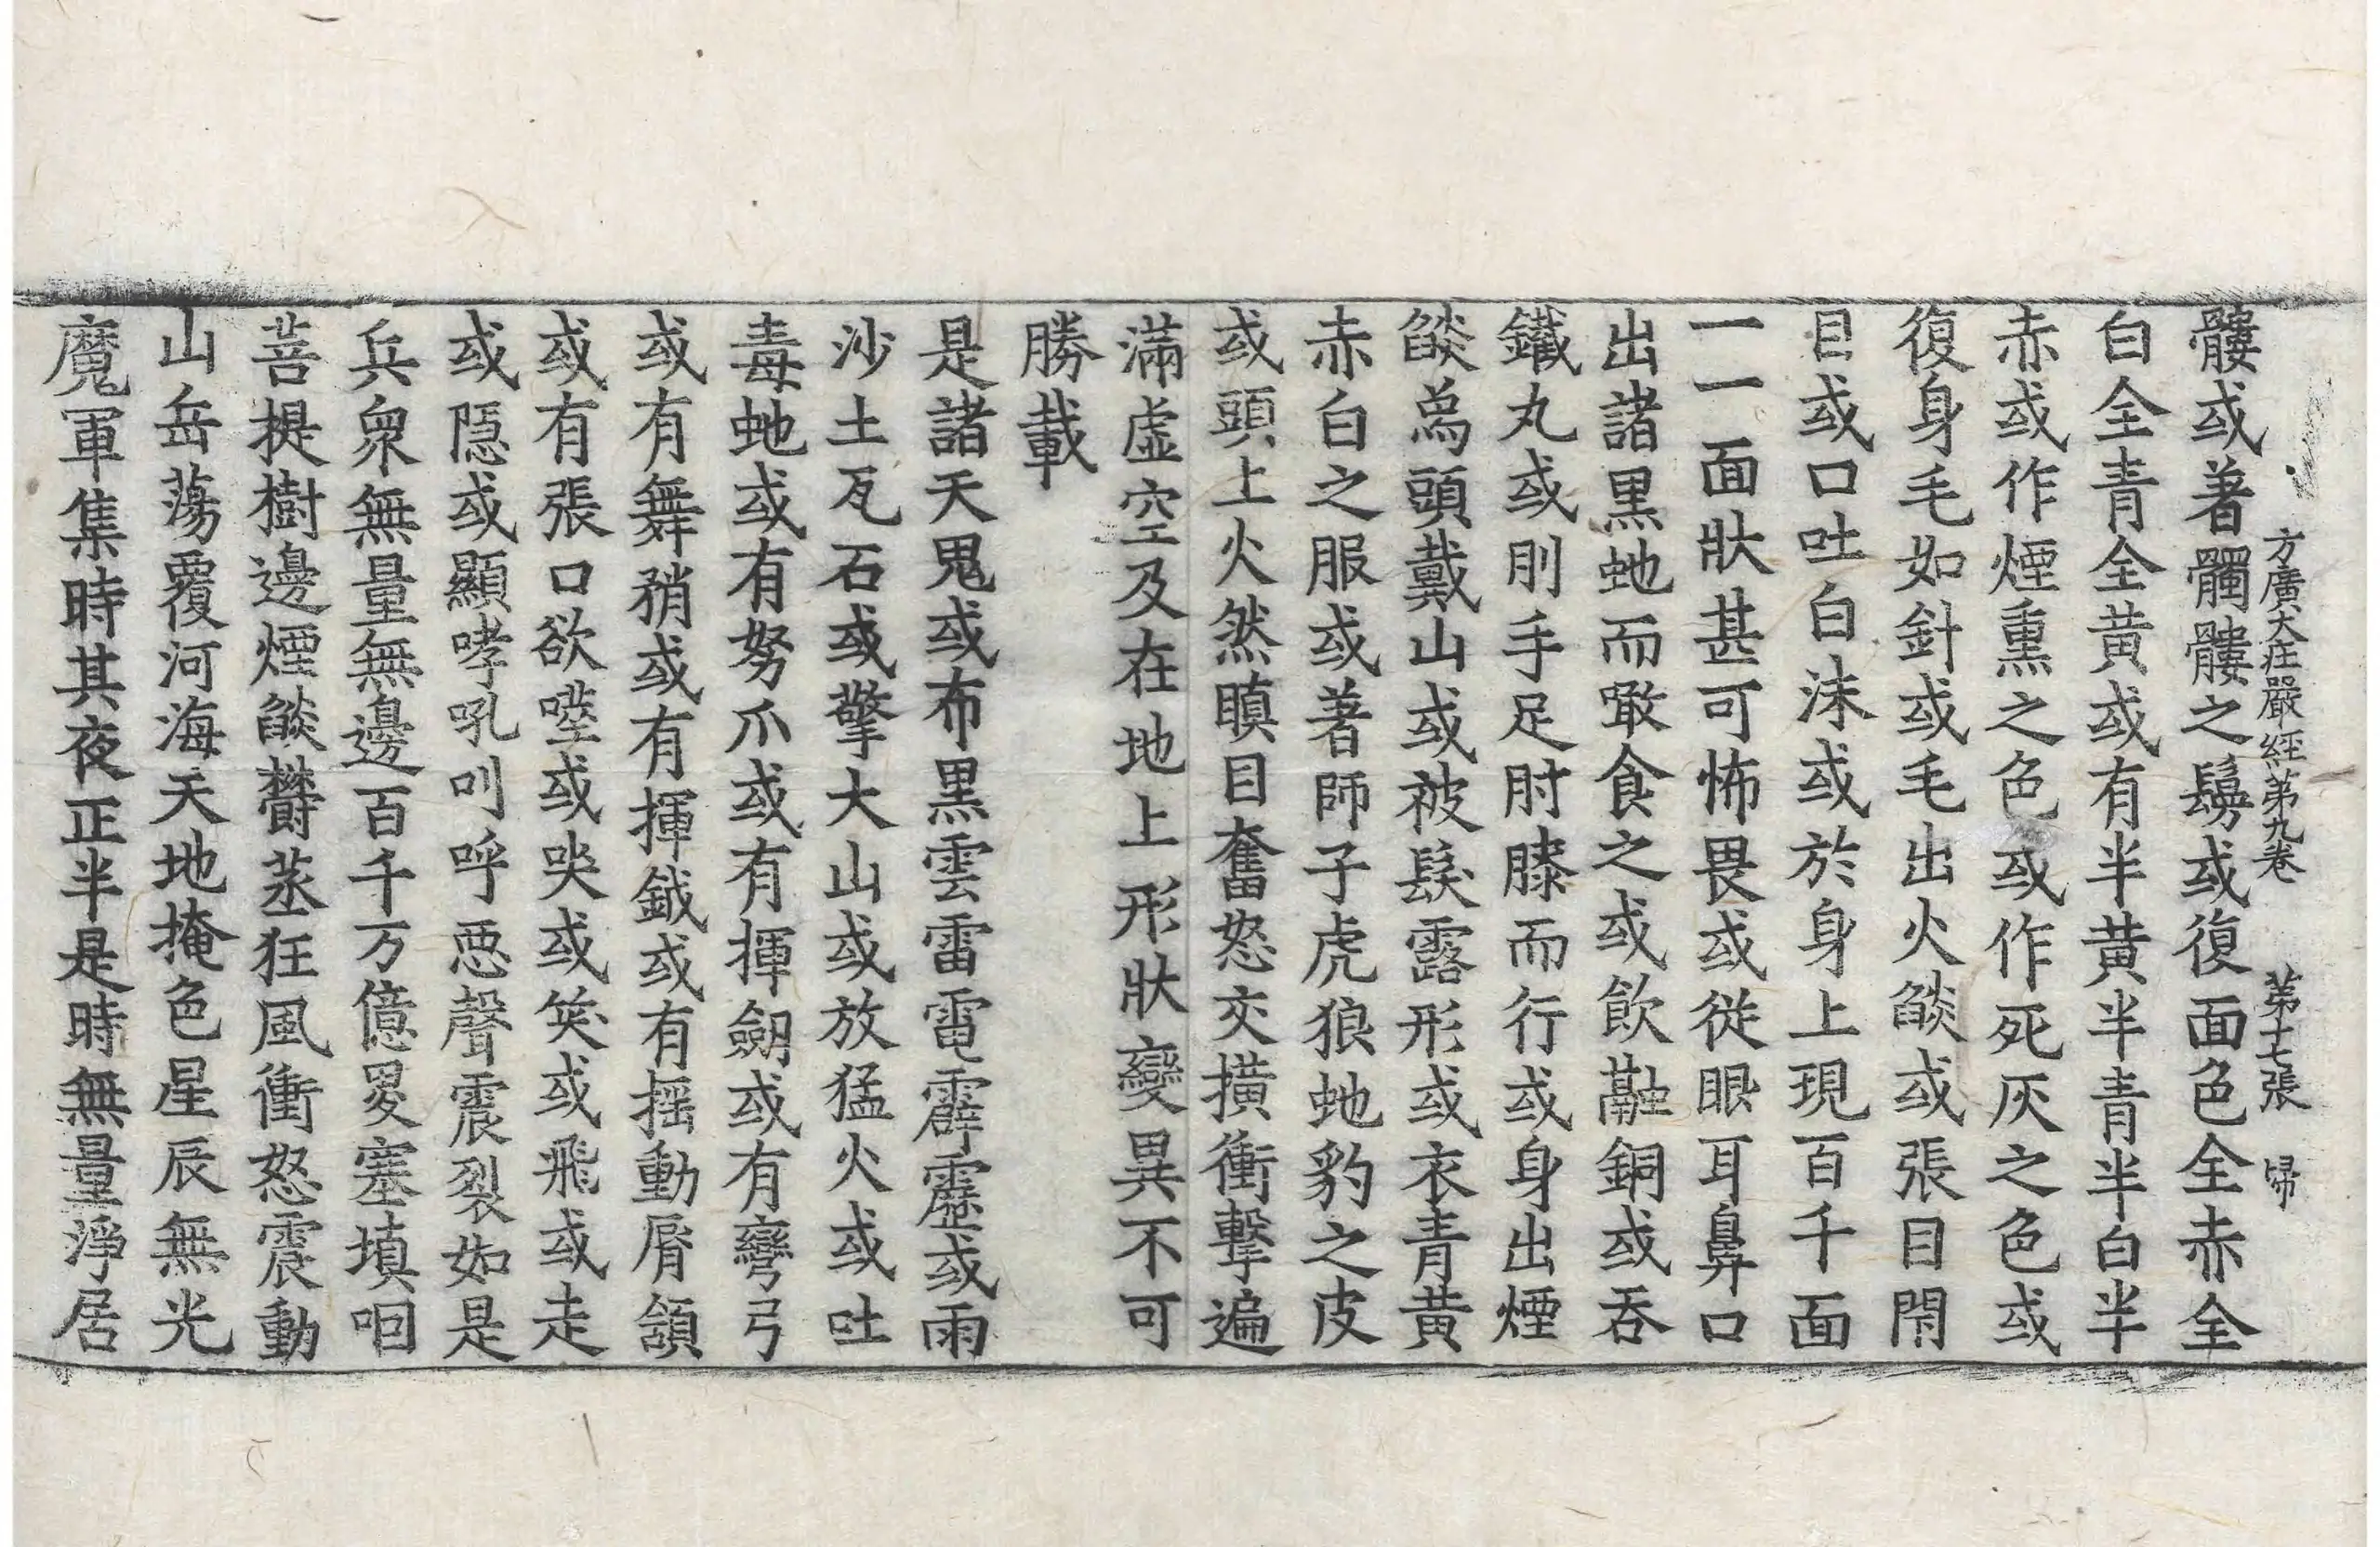 方廣大莊嚴經第九卷 第十七張 歸
髏或著髑髏之鬘或復面色全赤全
白全青全黃或有半黃半青半白半
赤或作煙熏之色或作死灰之色或
復身毛如針或毛出火燄或張目閇
目或口吐白沫或於身上現百千面
一一面狀甚可怖畏或從眼耳鼻口
出諸黑虵而噉食之或飮融銅或吞
鐵丸或刖手足肘膝而行或身出煙
燄爲頭戴山或被髮露形或衣青黃
赤白之服或著師子虎狼虵豹之皮
或頭上火然瞋目奮怒交撗衝擊遍
滿虛空及在地上形狀變異不可
勝載
是諸天鬼或布黑雲雷電霹靂或雨
沙土瓦石或擎大山或放猛火或吐
毒虵或有努爪或有揮劒或有彎弓
或有舞矟或有揮鉞或有摇動脣頷
或有張口欲噬或㖨或笑或飛或走
或隱或顯哮吼叫呼惡聲震裂如是
兵衆無量無邊百千万億畟塞塡咽
菩提樹邊煙燄欝蒸狂風衝怒震動
山岳蕩覆河海天地掩色星辰無光
魔軍集時其夜正半是時無量淨居